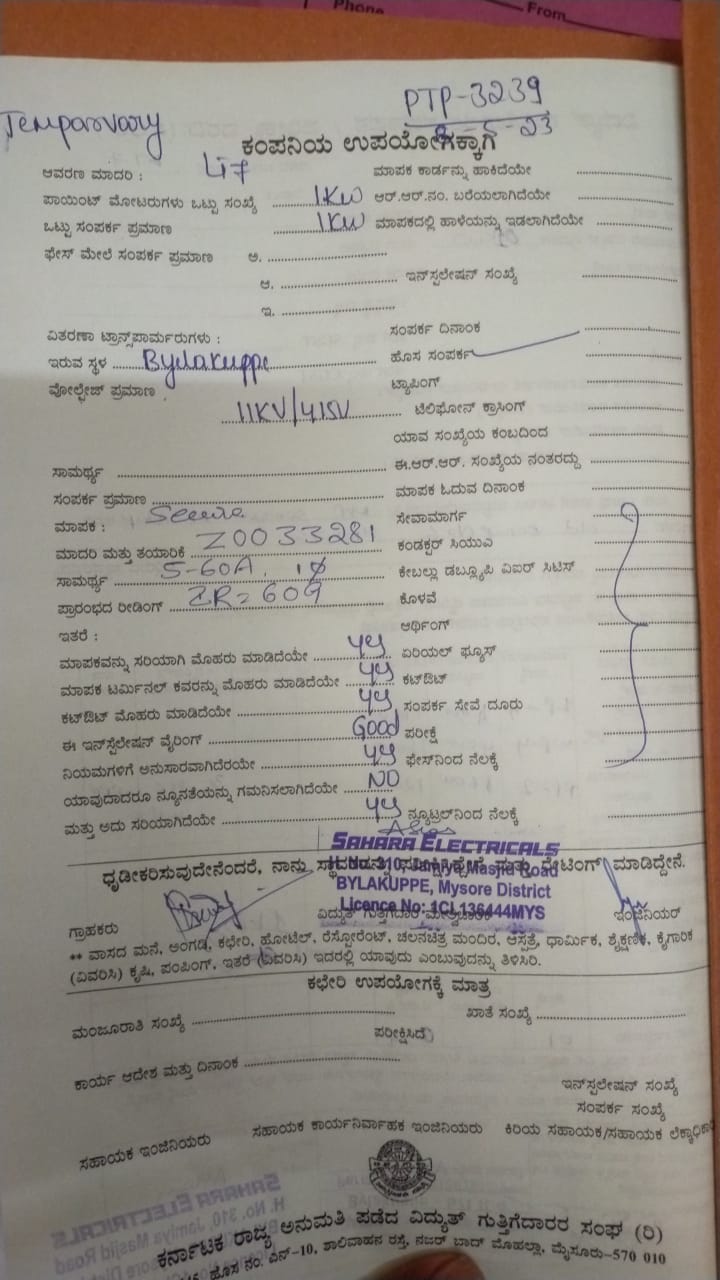 Phone
From
PTP-3239
Temporvary
8-5-23
ಕಂಪನಿಯ ಉಪಯೋಗಕ್ಕಾಗಿ
ಆವರಣ ಮಾದರಿ : LT7
ಮಾಪಕ ಕಾರ್ಡನ್ನು ಹಾಕಿದೆಯೇ
ಪಾಯಿಂಟ್ ಮೋಟರುಗಳು ಒಟ್ಟು ಸಂಖ್ಯೆ 1KW
ಆರ್.ಆರ್.ನಂ. ಬರೆಯಲಾಗಿದೆಯೇ
ಒಟ್ಟು ಸಂಪರ್ಕ ಪ್ರಮಾಣ 1KW
ಮಾಪಕದಲ್ಲಿ ಹಾಳೆಯನ್ನು ಇಡಲಾಗಿದೆಯೇ
ಫೇಸ್ ಮೇಲೆ ಸಂಪರ್ಕ ಪ್ರಮಾಣ ಅ.
ಆ.
ಇನ್‌ಸ್ಪಲೇಷನ್ ಸಂಖ್ಯೆ
ಇ.
ವಿತರಣಾ ಟ್ರಾನ್ಸ್‌ಪಾರ್ಮರುಗಳು :
ಸಂಪರ್ಕ ದಿನಾಂಕ
ಇರುವ ಸ್ಥಳ Bylakuppe
ಹೊಸ ಸಂಪರ್ಕ
ವೋಲ್ಟೇಜ್ ಪ್ರಮಾಣ
ಟ್ಯಾಪಿಂಗ್
11KV/415V
ಟೆಲಿಫೋನ್ ಕ್ರಾಸಿಂಗ್
ಯಾವ ಸಂಖ್ಯೆಯ ಕಂಬದಿಂದ
ಸಾಮರ್ಥ್ಯ
ಈ.ಆರ್.ಆರ್. ಸಂಖ್ಯೆಯ ನಂತರದ್ದು
ಸಂಪರ್ಕ ಪ್ರಮಾಣ
ಮಾಪಕ ಓದುವ ದಿನಾಂಕ
ಮಾಪಕ : Secure
ಸೇವಾಮಾರ್ಗ
ಮಾದರಿ ಮತ್ತು ತಯಾರಿಕೆ Z0033281
ಕಂಡಕ್ಟರ್ ಸಿಯುಎ
ಸಾಮರ್ಥ್ಯ 5-60A, 1ϕ
ಕೇಬಲ್ಲು ಡಬ್ಲ್ಯೂಪಿ ಎಐರ್ ಸಿಟಿಸ್
ಪ್ರಾರಂಭದ ರೀಡಿಂಗ್ IR=609
ಕೊಳವೆ
ಇತರೆ :
ಆರ್ಥಿಂಗ್
ಮಾಪಕವನ್ನು ಸರಿಯಾಗಿ ಮೊಹರು ಮಾಡಿದೆಯೇ yy
ಏರಿಯಲ್ ಫ್ಯೂಸ್
ಮಾಪಕ ಟರ್ಮಿನಲ್ ಕವರನ್ನು ಮೊಹರು ಮಾಡಿದೆಯೇ yy
ಕಟ್‌ಔಟ್
ಕಟ್‌ಔಟ್ ಮೊಹರು ಮಾಡಿದೆಯೇ yy
ಸಂಪರ್ಕ ಸೇವೆ ದೂರು
ಈ ಇನ್‌ಸ್ಪೆಲೇಷನ್ ವೈರಿಂಗ್ Good
ಪರೀಕ್ಷೆ
ನಿಯಮಗಳಿಗೆ ಅನುಸಾರವಾಗಿದೆರಯೇ yy
ಫೇಸ್‌ನಿಂದ ನೆಲಕ್ಕೆ
ಯಾವುದಾದರೂ ನ್ಯೂನತೆಯನ್ನು ಗಮನಿಸಲಾಗಿದೆಯೇ NO
ಮತ್ತು ಅದು ಸರಿಯಾಗಿದೆಯೇ yy
ನ್ಯೂಟ್ರಲ್‌ನಿಂದ ನೆಲಕ್ಕೆ
SAHARA ELECTRICALS
ಧೃಡೀಕರಿಸುವುದೇನೆಂದರೆ, ನಾನು ಮತ್ತು ಮಾಡಿದ್ದೇನೆ.
H. No. 310, Jamiya Masjid Road
BYLAKUPPE, Mysore District
Licence No: 1CL136444MYS
ಗ್ರಾಹಕರು
ವಿದ್ಯುತ್ ಗುತ್ತಿಗೆದಾರ
ಇಂಜಿನಿಯರ್
** ವಾಸದ ಮನೆ, ಅಂಗಡಿ, ಕಛೇರಿ, ಹೋಟೆಲ್, ರೆಸ್ಟೋರೆಂಟ್, ಚಲನಚಿತ್ರ ಮಂದಿರ, ಆಸ್ಪತ್ರೆ, ಧಾರ್ಮಿಕ, ಶೈಕ್ಷಣಿಕ, ಕೈಗಾರಿಕೆ
(ವಿವರಿಸಿ) ಕೃಷಿ, ಪಂಪಿಂಗ್, ಇತರೆ (ವಿವರಿಸಿ) ಇದರಲ್ಲಿ ಯಾವುದು ಎಂಬುವುದನ್ನು ತಿಳಿಸಿರಿ.
ಕಛೇರಿ ಉಪಯೋಗಕ್ಕೆ ಮಾತ್ರ
ಮಂಜೂರಾತಿ ಸಂಖ್ಯೆ
ಖಾತೆ ಸಂಖ್ಯೆ
ಪರೀಕ್ಷಿಸಿದೆ
ಕಾರ್ಯ ಆದೇಶ ಮತ್ತು ದಿನಾಂಕ
ಇನ್‌ಸ್ಪಲೇಷನ್ ಸಂಖ್ಯೆ
ಸಂಪರ್ಕ ಸಂಖ್ಯೆ
ಸಹಾಯಕ ಇಂಜಿನಿಯರು
ಸಹಾಯಕ ಕಾರ್ಯನಿರ್ವಾಹಕ ಇಂಜಿನಿಯರು
ಕಿರಿಯ ಸಹಾಯಕ/ಸಹಾಯಕ ಲೆಕ್ಕಾಧಿಕಾರಿ
ಕರ್ನಾಟಕ ರಾಜ್ಯ ಅನುಮತಿ ಪಡೆದ ವಿದ್ಯುತ್ ಗುತ್ತಿಗೆದಾರರ ಸಂಘ (ರಿ)
ಹೊಸ ನಂ. ಎನ್-10, ಶಾಲಿವಾಹನ ರಸ್ತೆ, ನಜರ್ ಬಾದ್ ಮೊಹಲ್ಲಾ, ಮೈಸೂರು-570 010